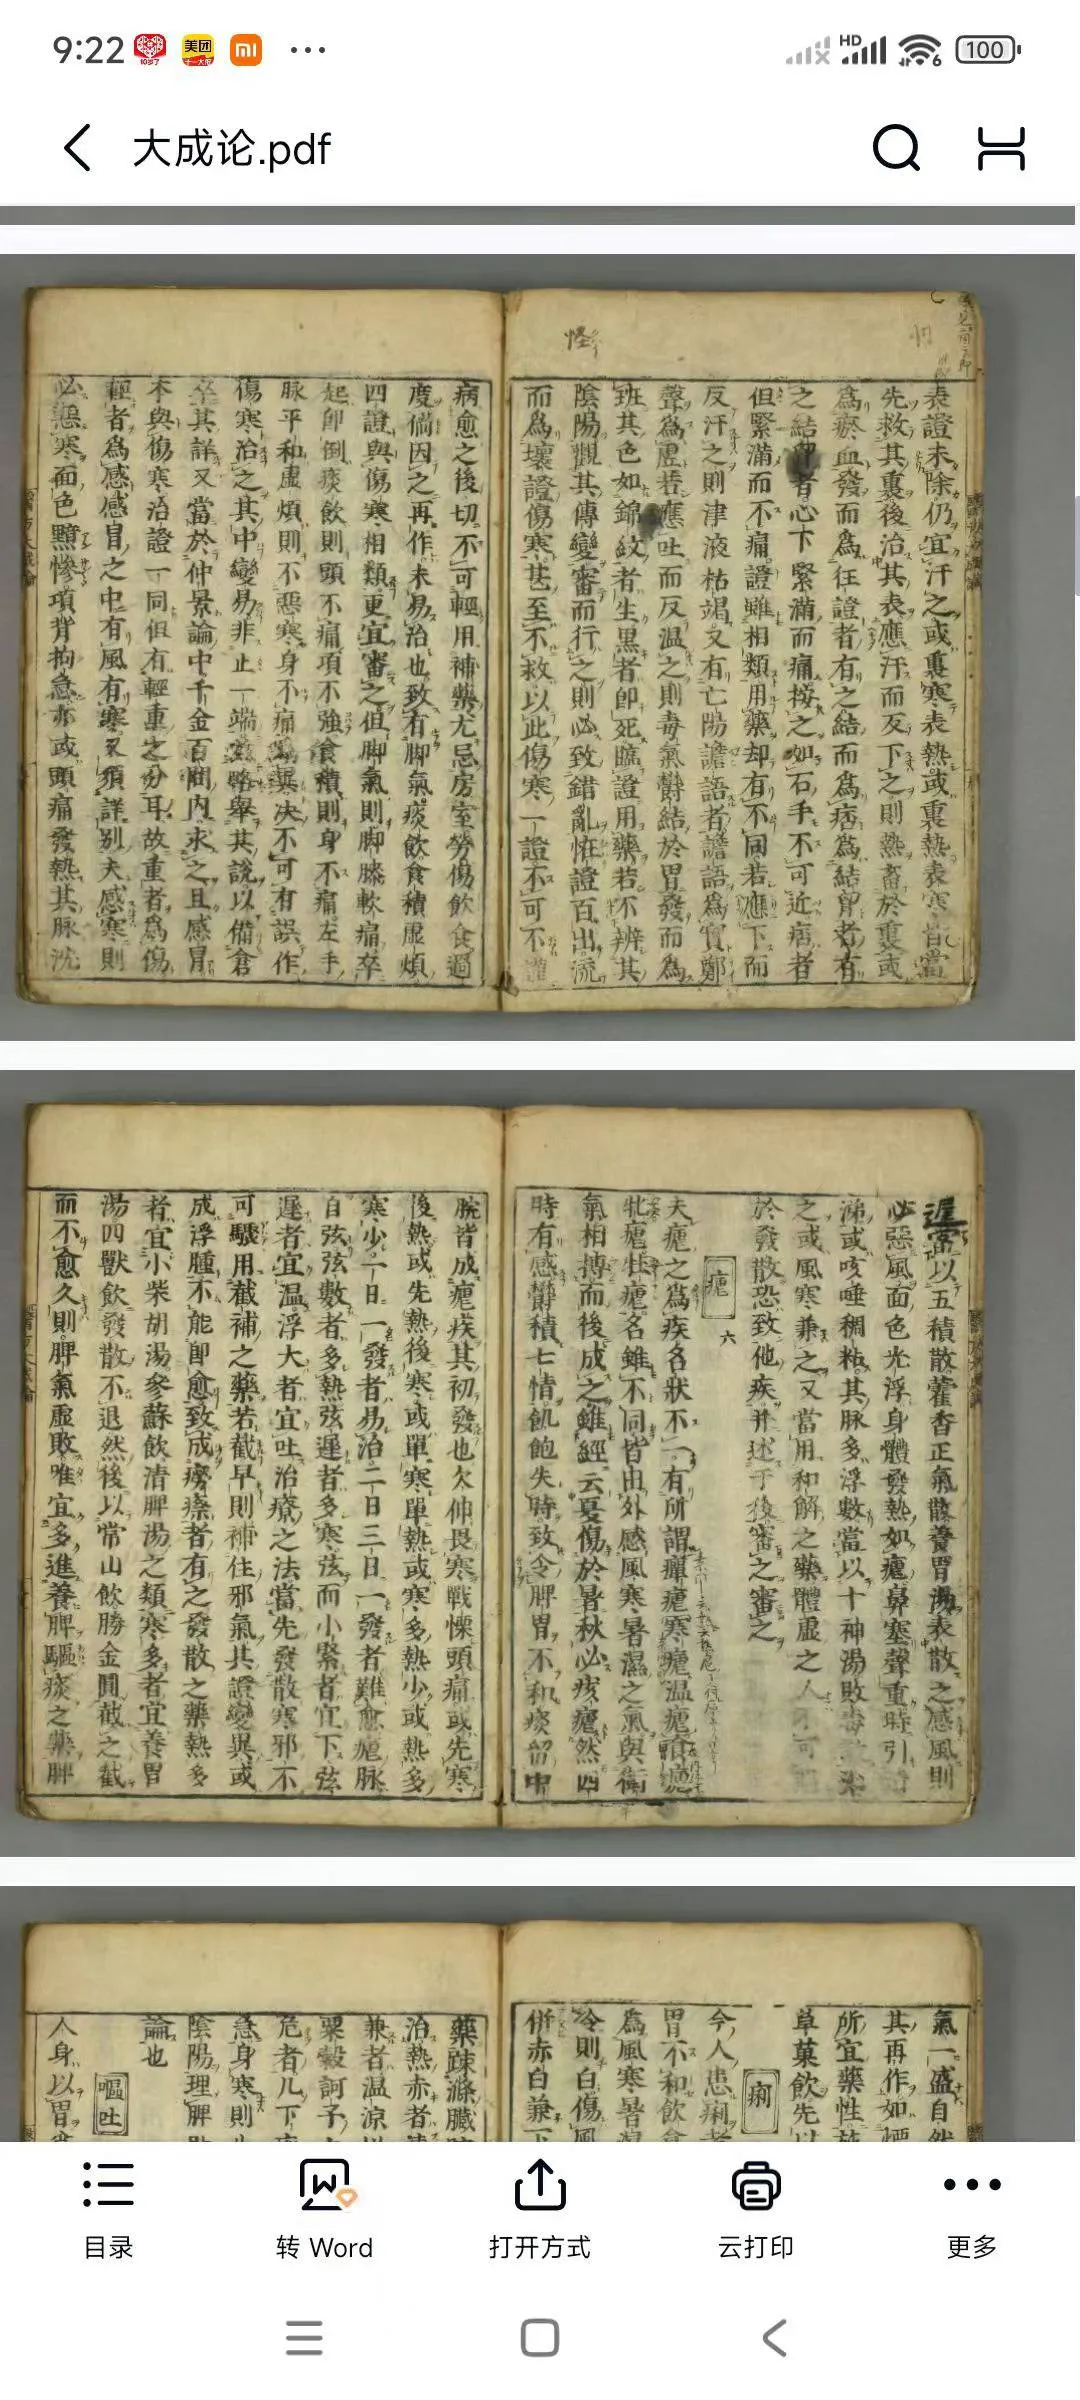 9:22
美团
mi
HD
6
100
大成论.pdf
怪
表證未除仍宜汗之或裏寒表熱或裏熱表寒皆當
先救其裏後治其表應汗而反下之則熱畜於裏或
爲瘀血發而爲狂證者有之結而爲痞爲結胷者有
之結胷者心下緊滿而痛按之如石手不可近痞者
但緊滿而不痛證雖相類用藥却有不同若應下而
反汗之則津液枯竭又有亡陽譫語者譫語爲實鄭
聲爲虛若應吐而反温之則毒氣欝結於胃發而爲
班其色如錦紋者生黒者即死臨證用藥若不辨其
陰陽觀其傳變審而行之則必致錯亂恠證百出流
而爲壞證傷寒甚至不救以此傷寒一證不可不謹
病愈之後切不可輕用補藥尤忌房室勞傷飲食過
度倘因之再作未易治也致有脚氣痰飲食積虛煩
四證與傷寒相類更宜審之但脚氣則脚膝軟痛卒
起即倒痰飲則頭不痛項不強食積則身不痛左手
脉平和虛煩則不惡寒身不痛爲異决不可有誤作
傷寒治之其中變易非止一端略舉其說以備倉
卒其詳又當於仲景論中千金百問内求之且感冒
本與傷寒治證一同但有輕重之分耳故重者爲傷
輕者爲感感冒之中有風有寒又須詳別夫感寒則
必惡寒面色黲慘項背拘急亦或頭痛發熱其脉沈
遲當以五積散藿香正氣散養胃湯表散之感風則
必惡風面色光浮身體發熱如瘧鼻塞聲重時引
涕或咳唾稠粘其脉多浮數當以十神湯敗毒
之或風寒兼之又當用和解之藥體虛之人不可
於發散恐致他疾并述于後審之審之
瘧
六
夫瘧之爲疾名狀不一有所謂癉瘧寒瘧温瘧食瘧
牝瘧牡瘧名雖不同皆由外感風寒暑濕之氣與衛
氣相搏而後成之雖經云夏傷於暑秋必痎瘧然四
時有感欝積七情飢飽失時致令脾胃不和痰留中
脘皆成瘧疾其初發也欠伸畏寒戰慄頭痛或先寒
後熱或先熱後寒或單寒單熱或寒多熱少或熱多
寒少一日一發者易治二日三日一發者難愈瘧脉
自弦弦數者多熱弦遲者多寒弦而小緊者宜下弦
遲者宜温浮大者宜吐治療之法當先發散寒邪不
可驟用截補之藥若截早則補住邪氣其證變異或
成浮腫不能即愈致成癆瘵者有之發散之藥熱多
者宜小柴胡湯參蘇飲清脾湯之類寒多者宜養胃
湯四獸飲發散不退然後以常山飲勝金圓截之截
而不愈久則脾氣虛敗唯宜多進養脾驅痰之藥脾
氣一盛自然
其再作如
所宜藥性
草菓飲先以
痢
今人患痢者
胃不和飲食
爲風寒暑濕
冷則白傷風
併赤白兼下
藥踈滌臟
治熱赤者
兼者温涼
粟殼訶子
危者儿下
急身寒則
陰陽理脾
論也
嘔吐
人身以胃
目录
转 Word
打开方式
云打印
更多